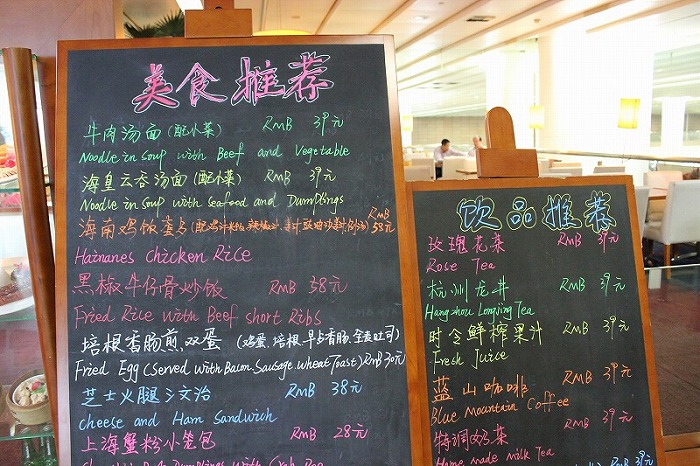 美食推荐
牛肉汤面(配小菜) RMB 39元
Noodle in Soup with Beef and Vegetable
海皇云吞汤面(配小菜) RMB 39元
Noodle in Soup with Seafood and Dumplings
海南鸡饭 RMB 58元
Hainanes chicken Rice
黑椒牛仔骨炒饭 RMB 38元
Fried Rice with Beef short Ribs
培根香肠煎双蛋 (鸡蛋、培根、早占香肠、全麦吐司) RMB 30元
Fried Egg (Served with Bacon. Sausage. wheat Toast)
芝士火腿三文治 RMB 38元
cheese and Ham Sandwich
上海蟹粉小笼包 RMB 28元
饮品推荐
玫瑰花茶 RMB 39元
Rose Tea
杭州龙井 RMB 39元
Hangzhou Longjing Tea
时令鲜榨果汁 RMB 39元
Fresh Juice
蓝山咖啡 RMB 39元
Blue Mountain Coffee
特调奶茶 RMB 39元
Home made milk Tea
RMB 39元